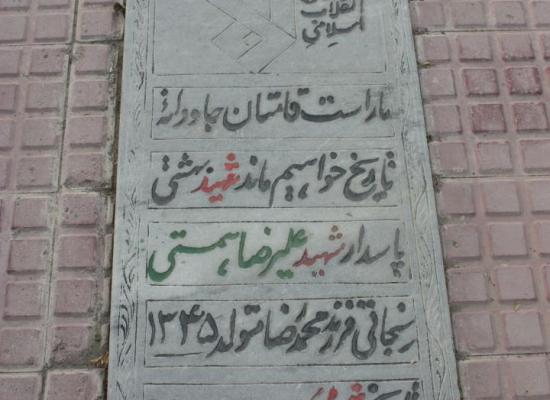 انقلاب
اسلامی
ما راست قامتان جاودانهٔ
تاریخ خواهیم ماند شهید بهشتی
پاسدار شهید علیرضا همتی
رنجانی فرزند محمدرضا متولد ۱۳۴۵